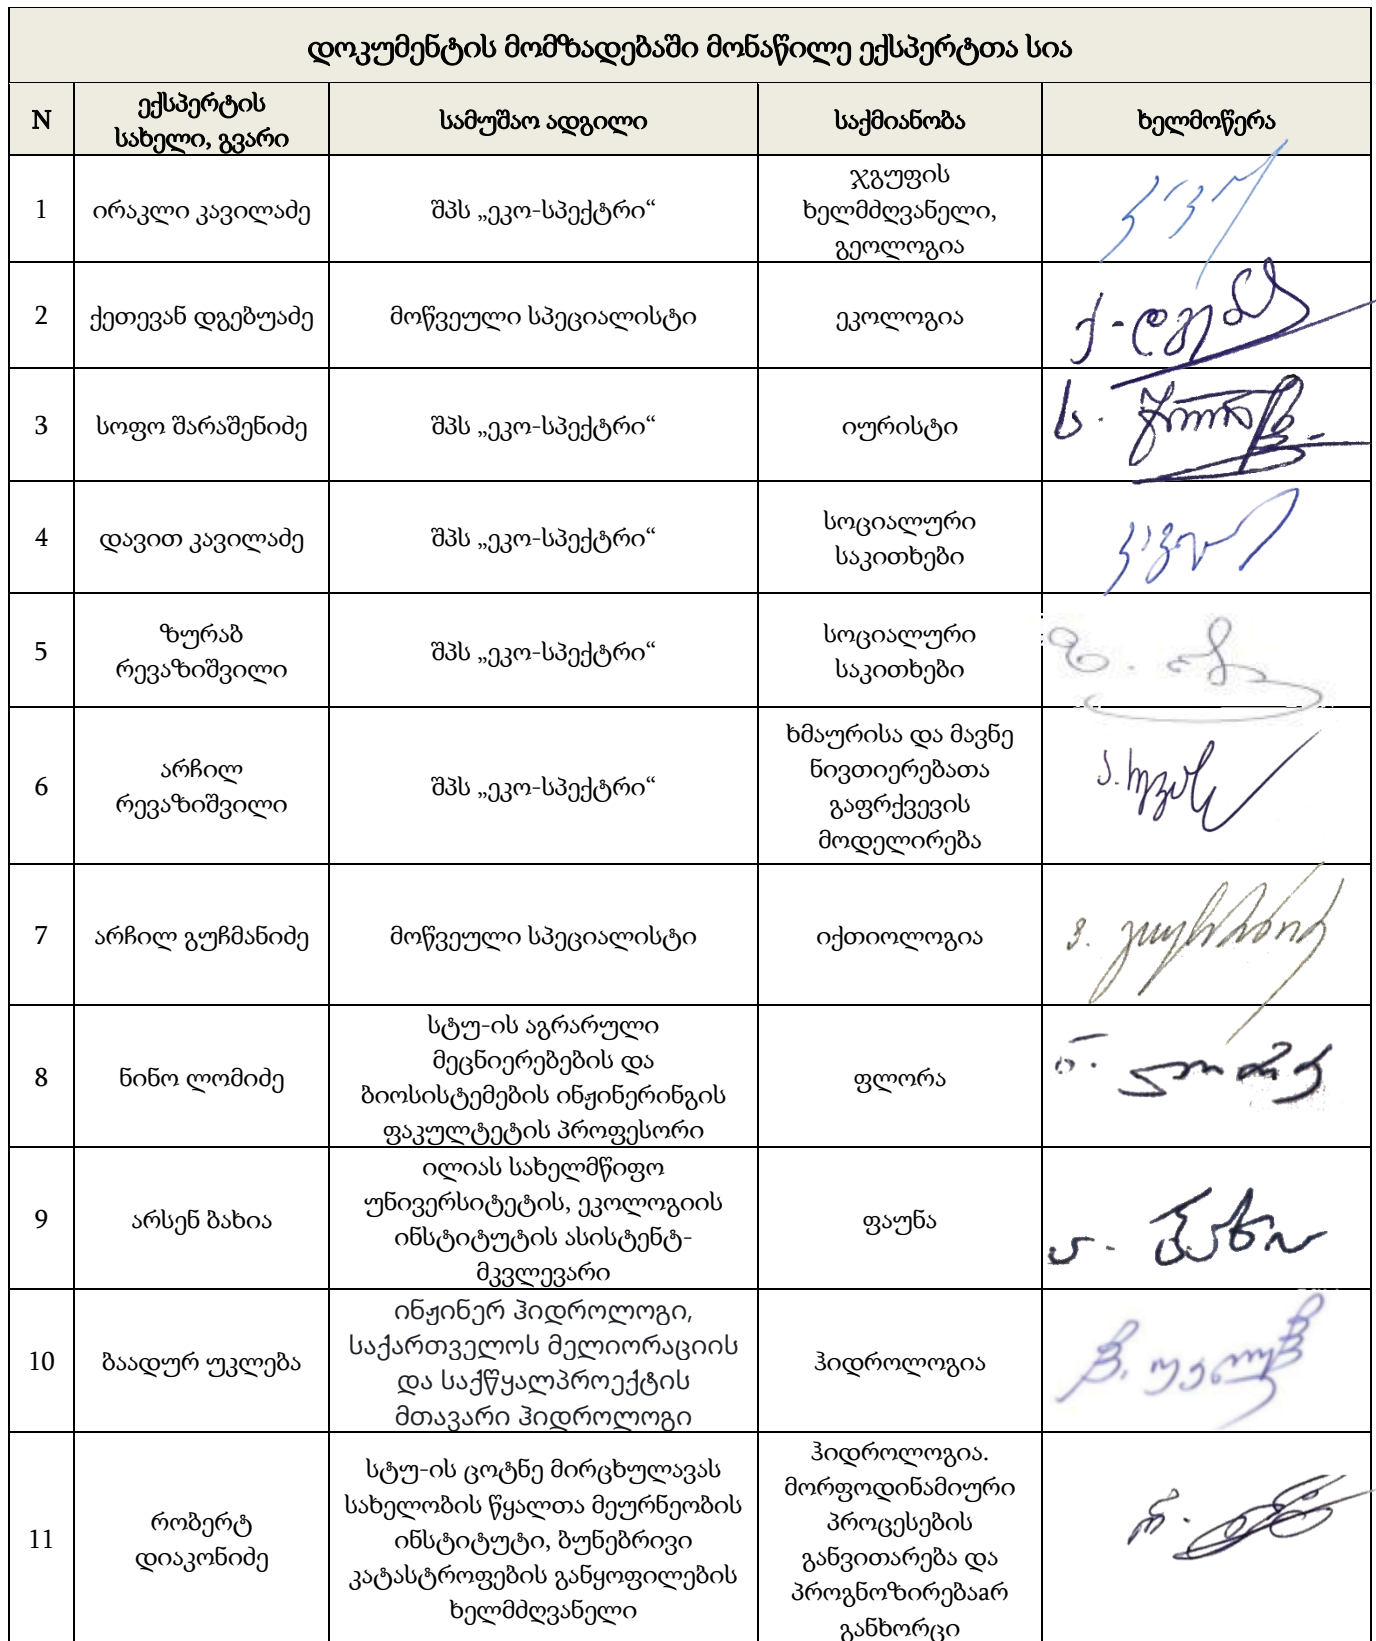 დოკუმენტის მომზადებაში მონაწილე ექსპერტთა სია
N
ექსპერტის
სახელი, გვარი
სამუშაო ადგილი
საქმიანობა
ხელმოწერა
1
ირაკლი კავილაძე
შპს „ეკო-სპექტრი“
ჯგუფის
ხელმძღვანელი,
გეოლოგია
2
ქეთევან დგებუაძე
მოწვეული სპეციალისტი
ეკოლოგია
3
სოფო შარაშენიძე
შპს „ეკო-სპექტრი“
იურისტი
4
დავით კავილაძე
შპს „ეკო-სპექტრი“
სოციალური
საკითხები
5
ზურაბ
რევაზიშვილი
შპს „ეკო-სპექტრი“
სოციალური
საკითხები
6
არჩილ
რევაზიშვილი
შპს „ეკო-სპექტრი“
ხმაურისა და მავნე
ნივთიერებათა
გაფრქვევის
მოდელირება
7
არჩილ გუჩმანიძე
მოწვეული სპეციალისტი
იქთიოლოგია
8
ნინო ლომიძე
სტუ-ის აგრარული
მეცნიერებების და
ბიოსისტემების ინჟინერინგის
ფაკულტეტის პროფესორი
ფლორა
9
არსენ ბახია
ილიას სახელმწიფო
უნივერსიტეტის, ეკოლოგიის
ინსტიტუტის ასისტენტ-
მკვლევარი
ფაუნა
10
ბაადურ უკლება
ინჟინერ ჰიდროლოგი,
საქართველოს მელიორაციის
და საქწყალპროექტის
მთავარი ჰიდროლოგი
ჰიდროლოგია
11
რობერტ
დიაკონიძე
სტუ-ის ცოტნე მირცხულავას
სახელობის წყალთა მეურნეობის
ინსტიტუტი, ბუნებრივი
კატასტროფების განყოფილების
ხელმძღვანელი
ჰიდროლოგია.
მორფოდინამიური
პროცესების
განვითარება და
პროგნოზირებაarრ
განხორცი